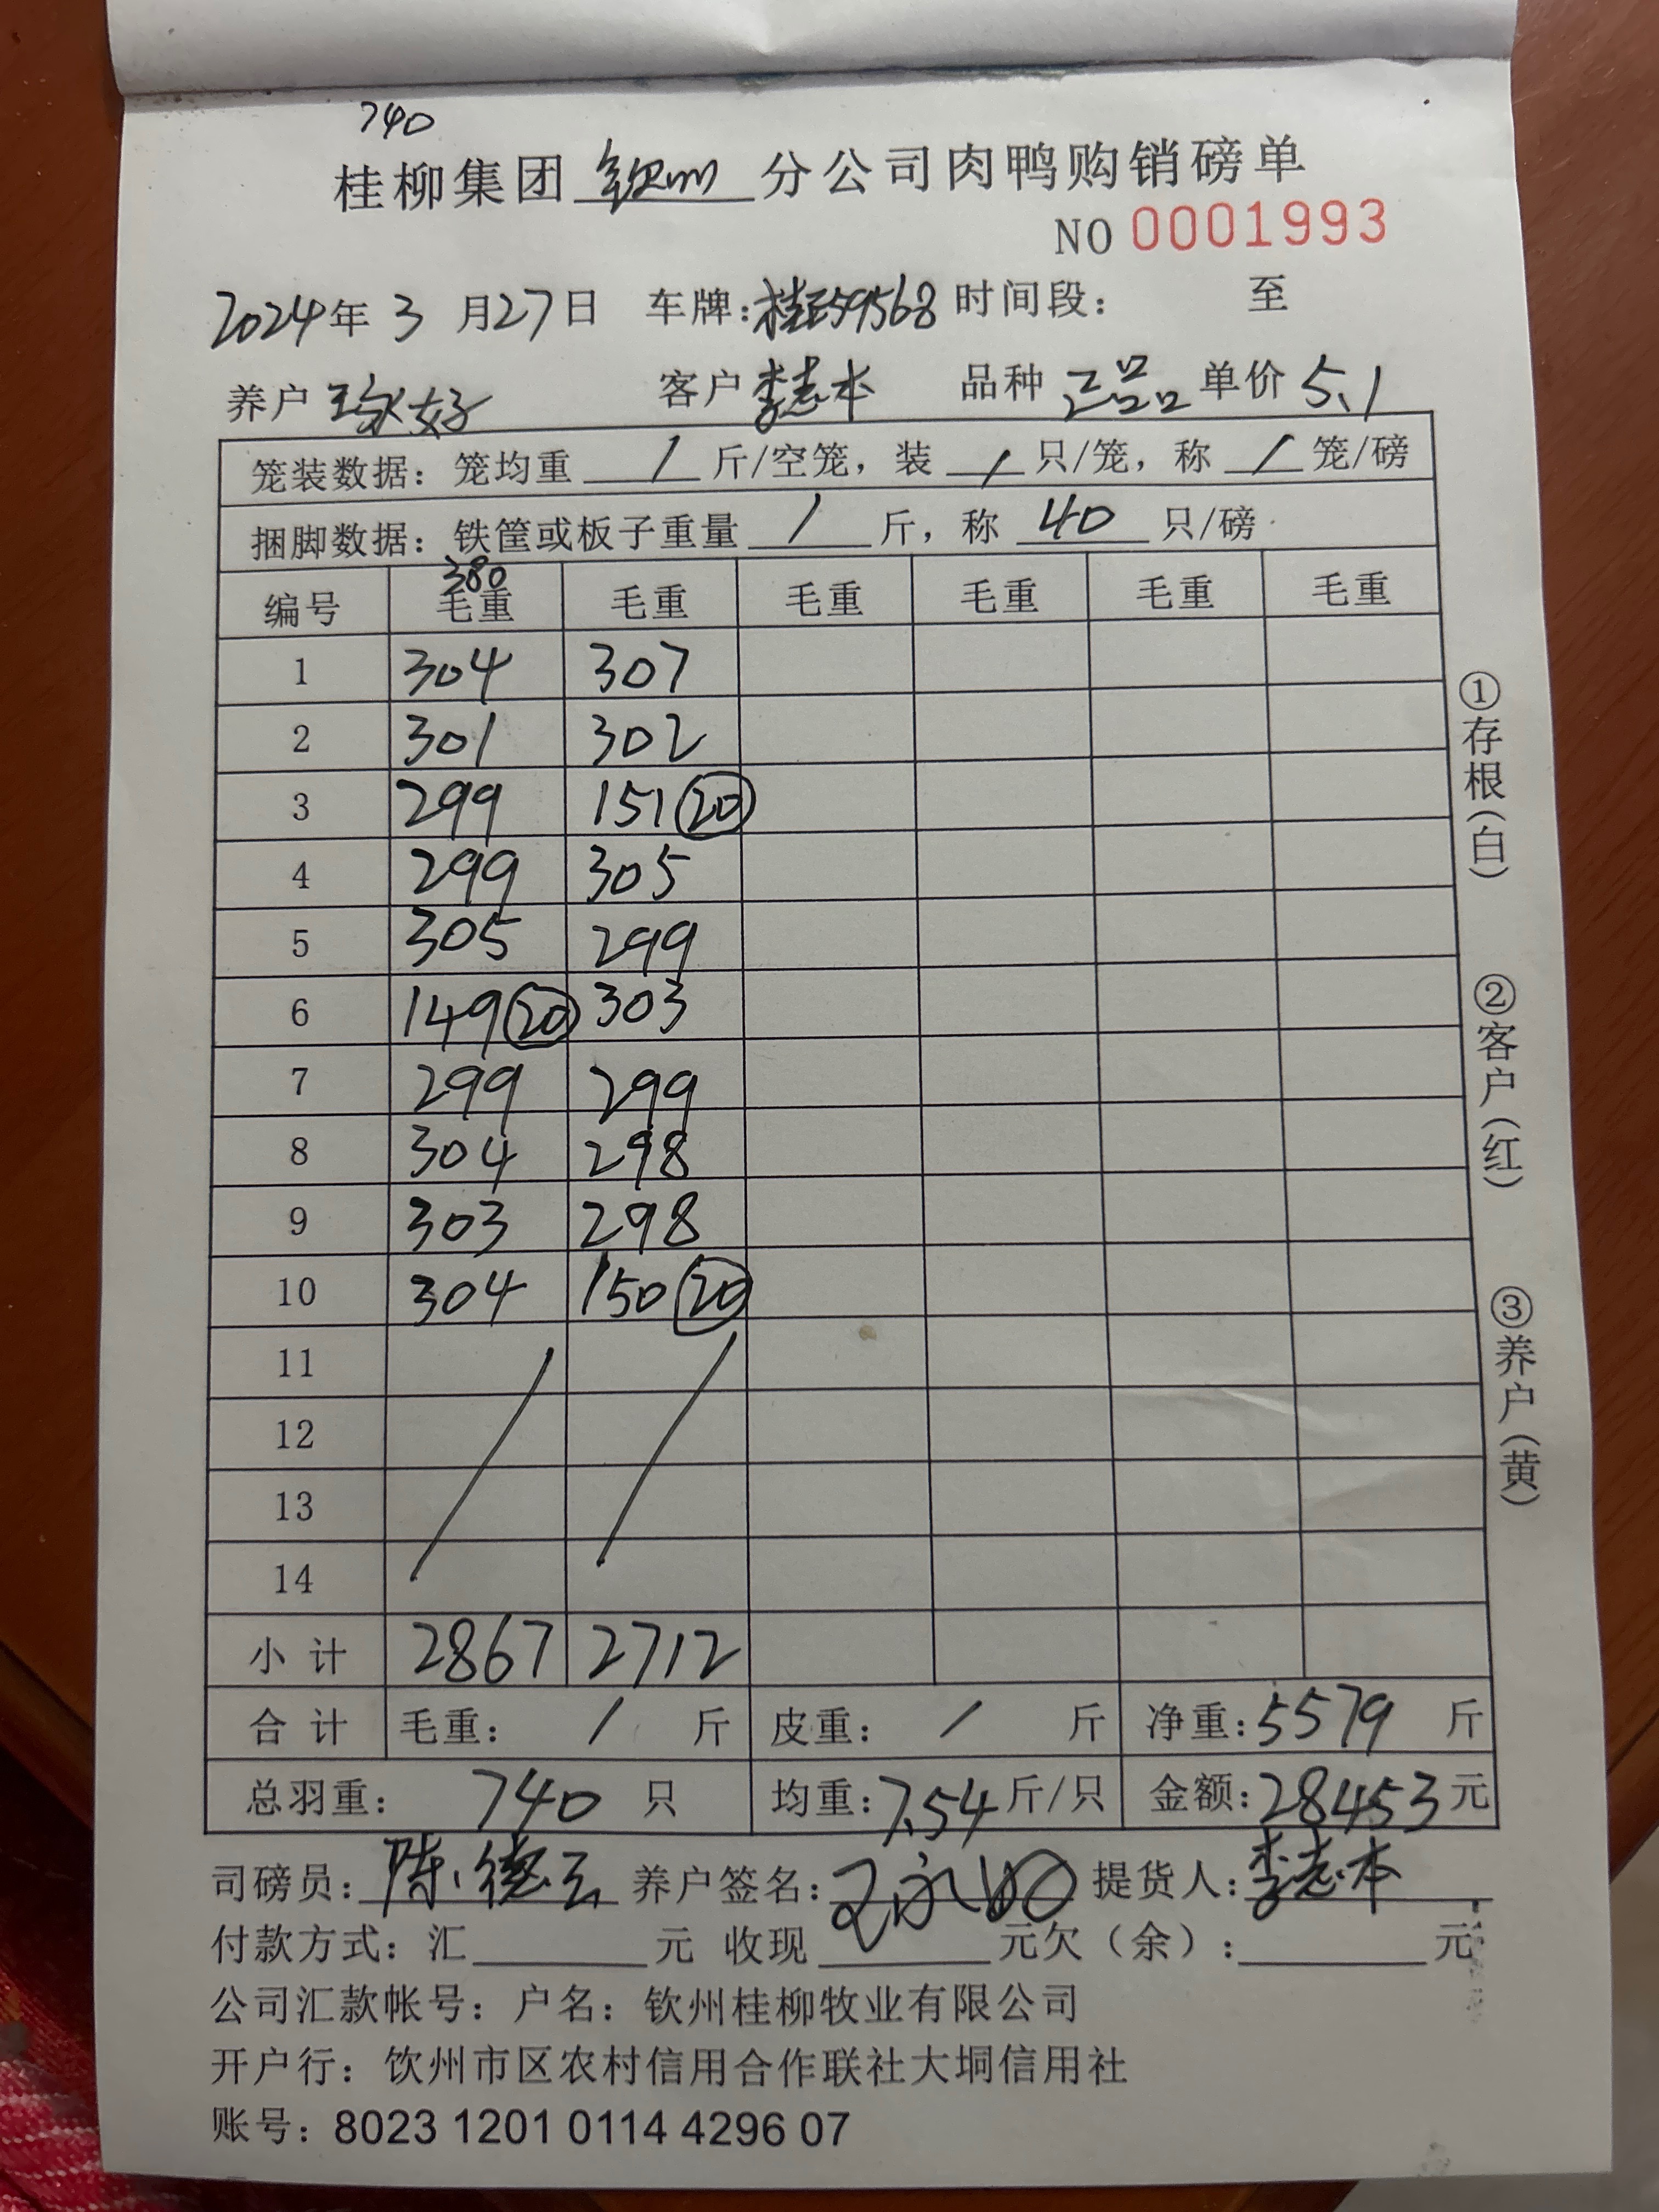 740
桂柳集团 钦州 分公司肉鸭购销磅单
NO 0001993
2024年 3 月27日 车牌:桂E59568 时间段: 至
养户 好 客户 李志本 品种 正品 单价 5.1
笼装数据: 笼均重 / 斤/空笼, 装 / 只/笼, 称 / 笼/磅
捆脚数据: 铁筐或板子重量 / 斤, 称 40 只/磅
380
编号 毛重 毛重 毛重 毛重 毛重 毛重
1 304 307
2 301 302
3 299 151 20
4 299 305
5 305 299
6 149 20 303
7 299 299
8 304 298
9 303 298
10 304 150 20
11
12
13
14
小计 2867 2712
合计 毛重: / 斤 皮重: / 斤 净重: 5579 斤
总羽重: 740 只 均重: 7.54 斤/只 金额: 28453 元
司磅员: 陈德云 养户签名: 提货人: 李志本
付款方式: 汇 元 收现 元欠(余): 元
公司汇款帐号: 户名: 钦州桂柳牧业有限公司
开户行: 饮州市区农村信用合作联社大垌信用社
账号: 8023 1201 0114 4296 07
①存根(白)
②客户(红)
③养户(黄)